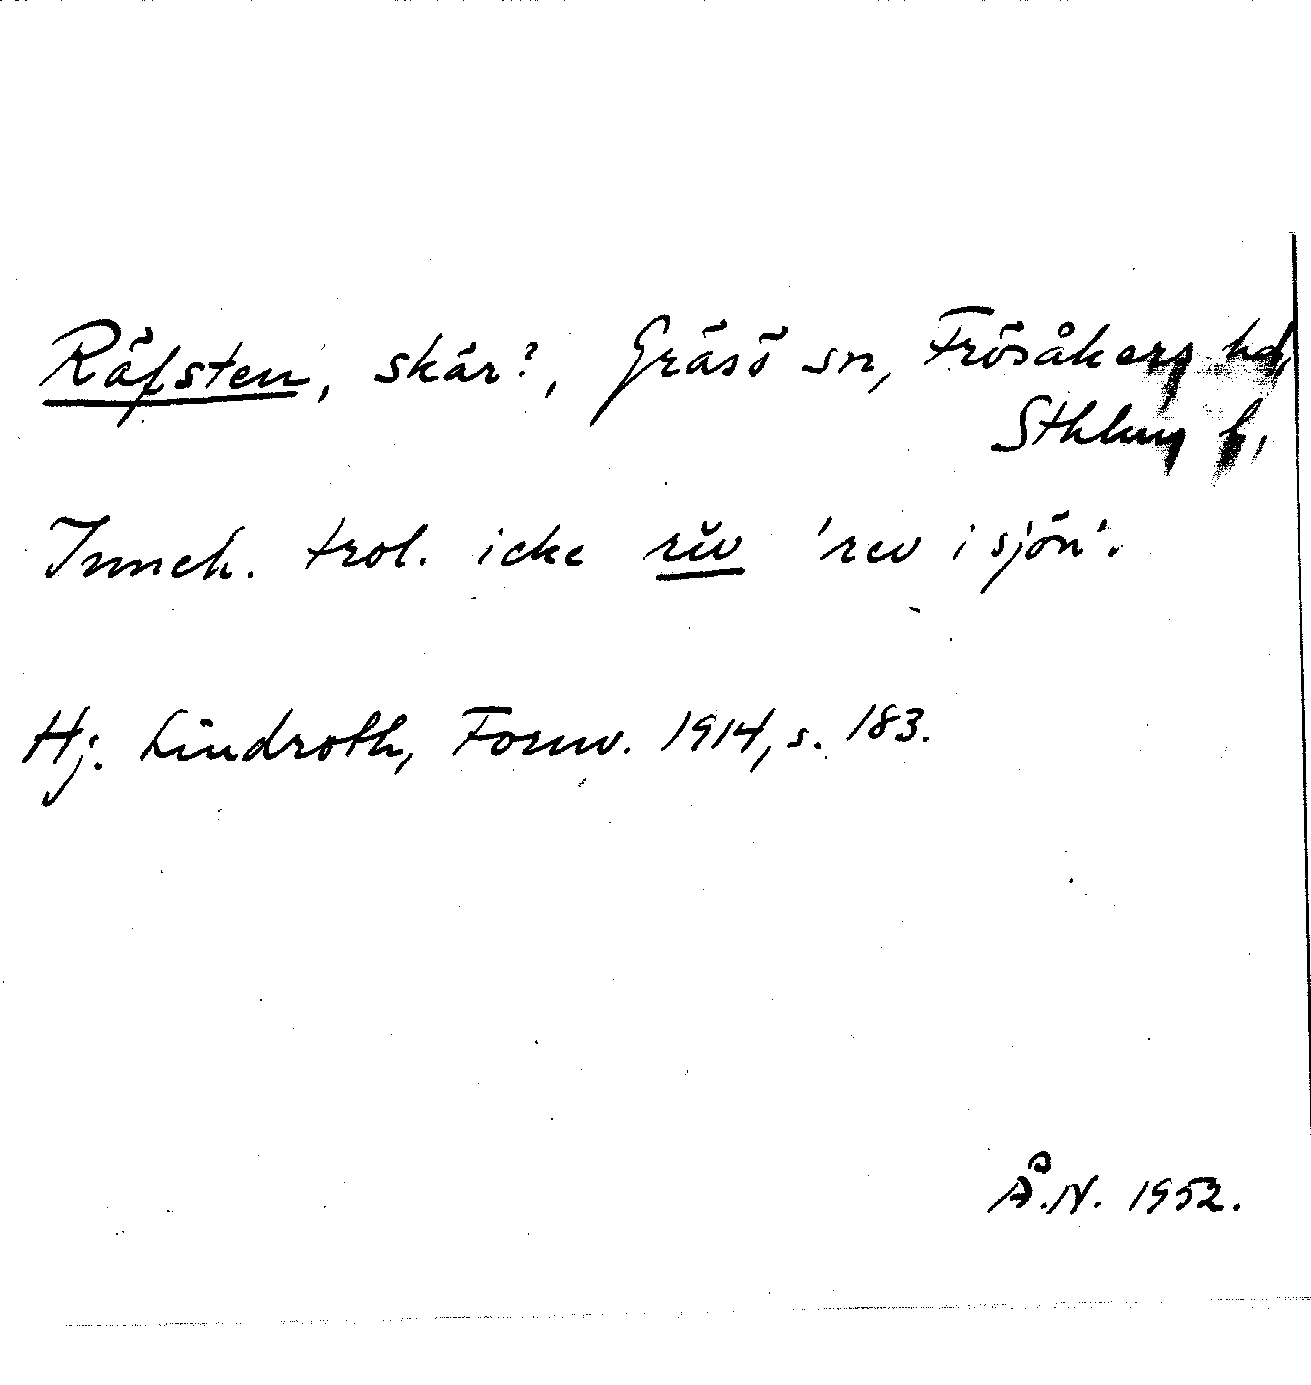 Räfsten, skär?, Gräsö sn, Frösåkers hd,
Sthlms l.
Inneh. trol. icke rĕv 'rev i sjön'.
Hj. Lindroth, Fornv. 1914, s. 183.
Å.N. 1952.